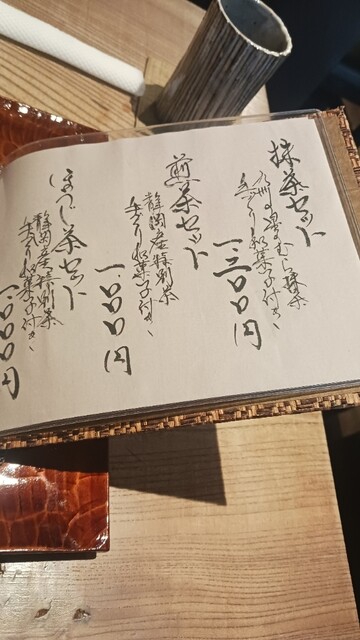 抹茶セット
手づくり和菓子付き、
一、三〇〇円
煎茶セット
静岡産特別茶
手づくり和菓子付き、
一、〇〇〇円
ほうじ茶セット
静岡産特別茶
手づくり和菓子付き、
一、〇〇〇円